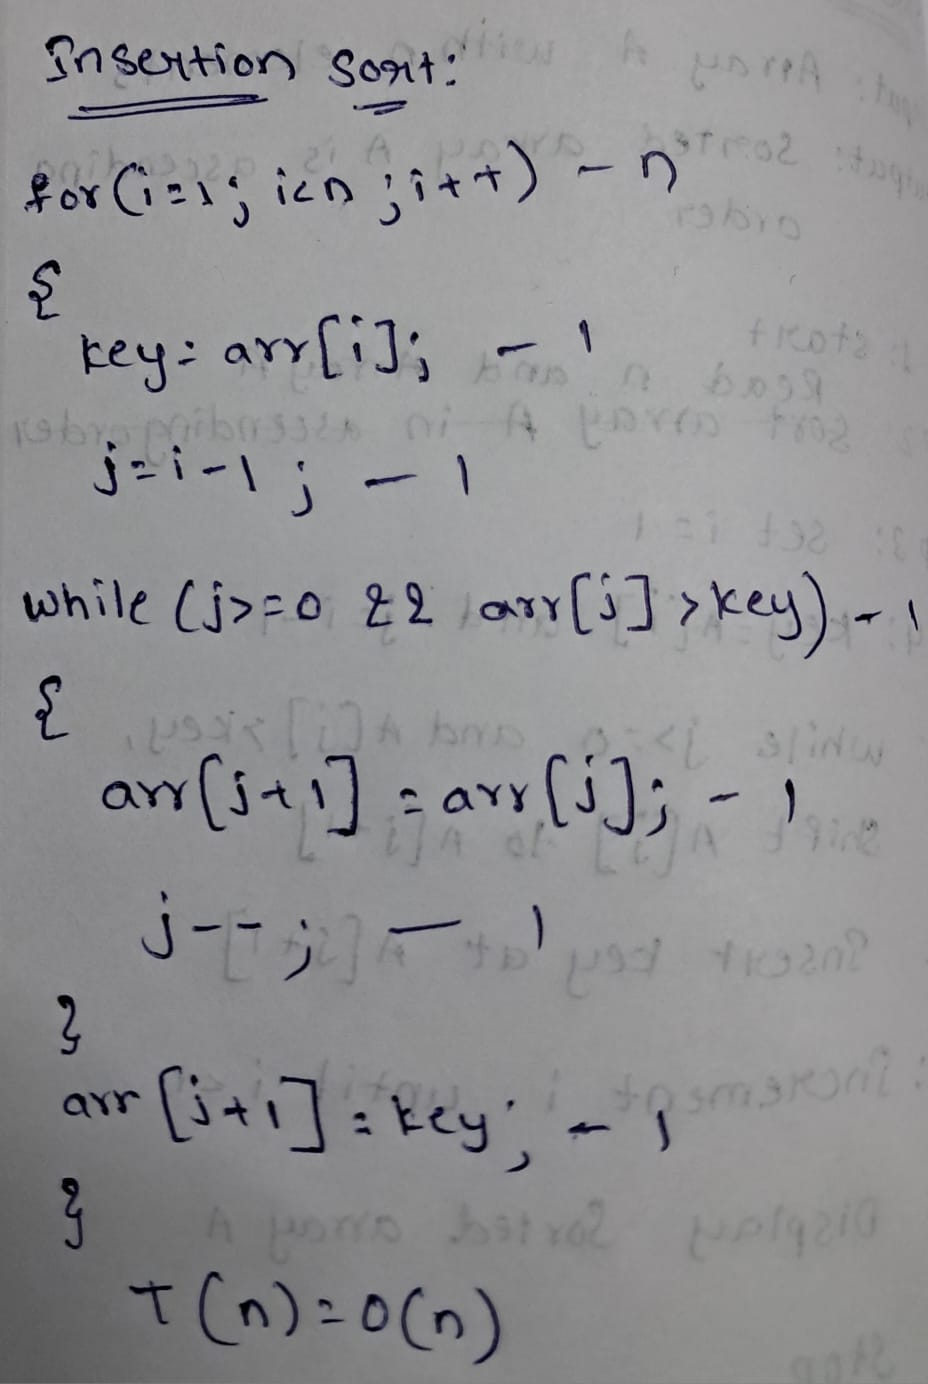 Insertion Sort:
for(i=1; i<n; i++) - n
{
key = arr[i]; - 1
j=i-1; - 1
while (j>=0 && arr[j] > key) - 1
{
arr[j+1] = arr[j]; - 1
j--; - 1
}
arr[j+1] = key; - 1
}
T(n)=O(n)